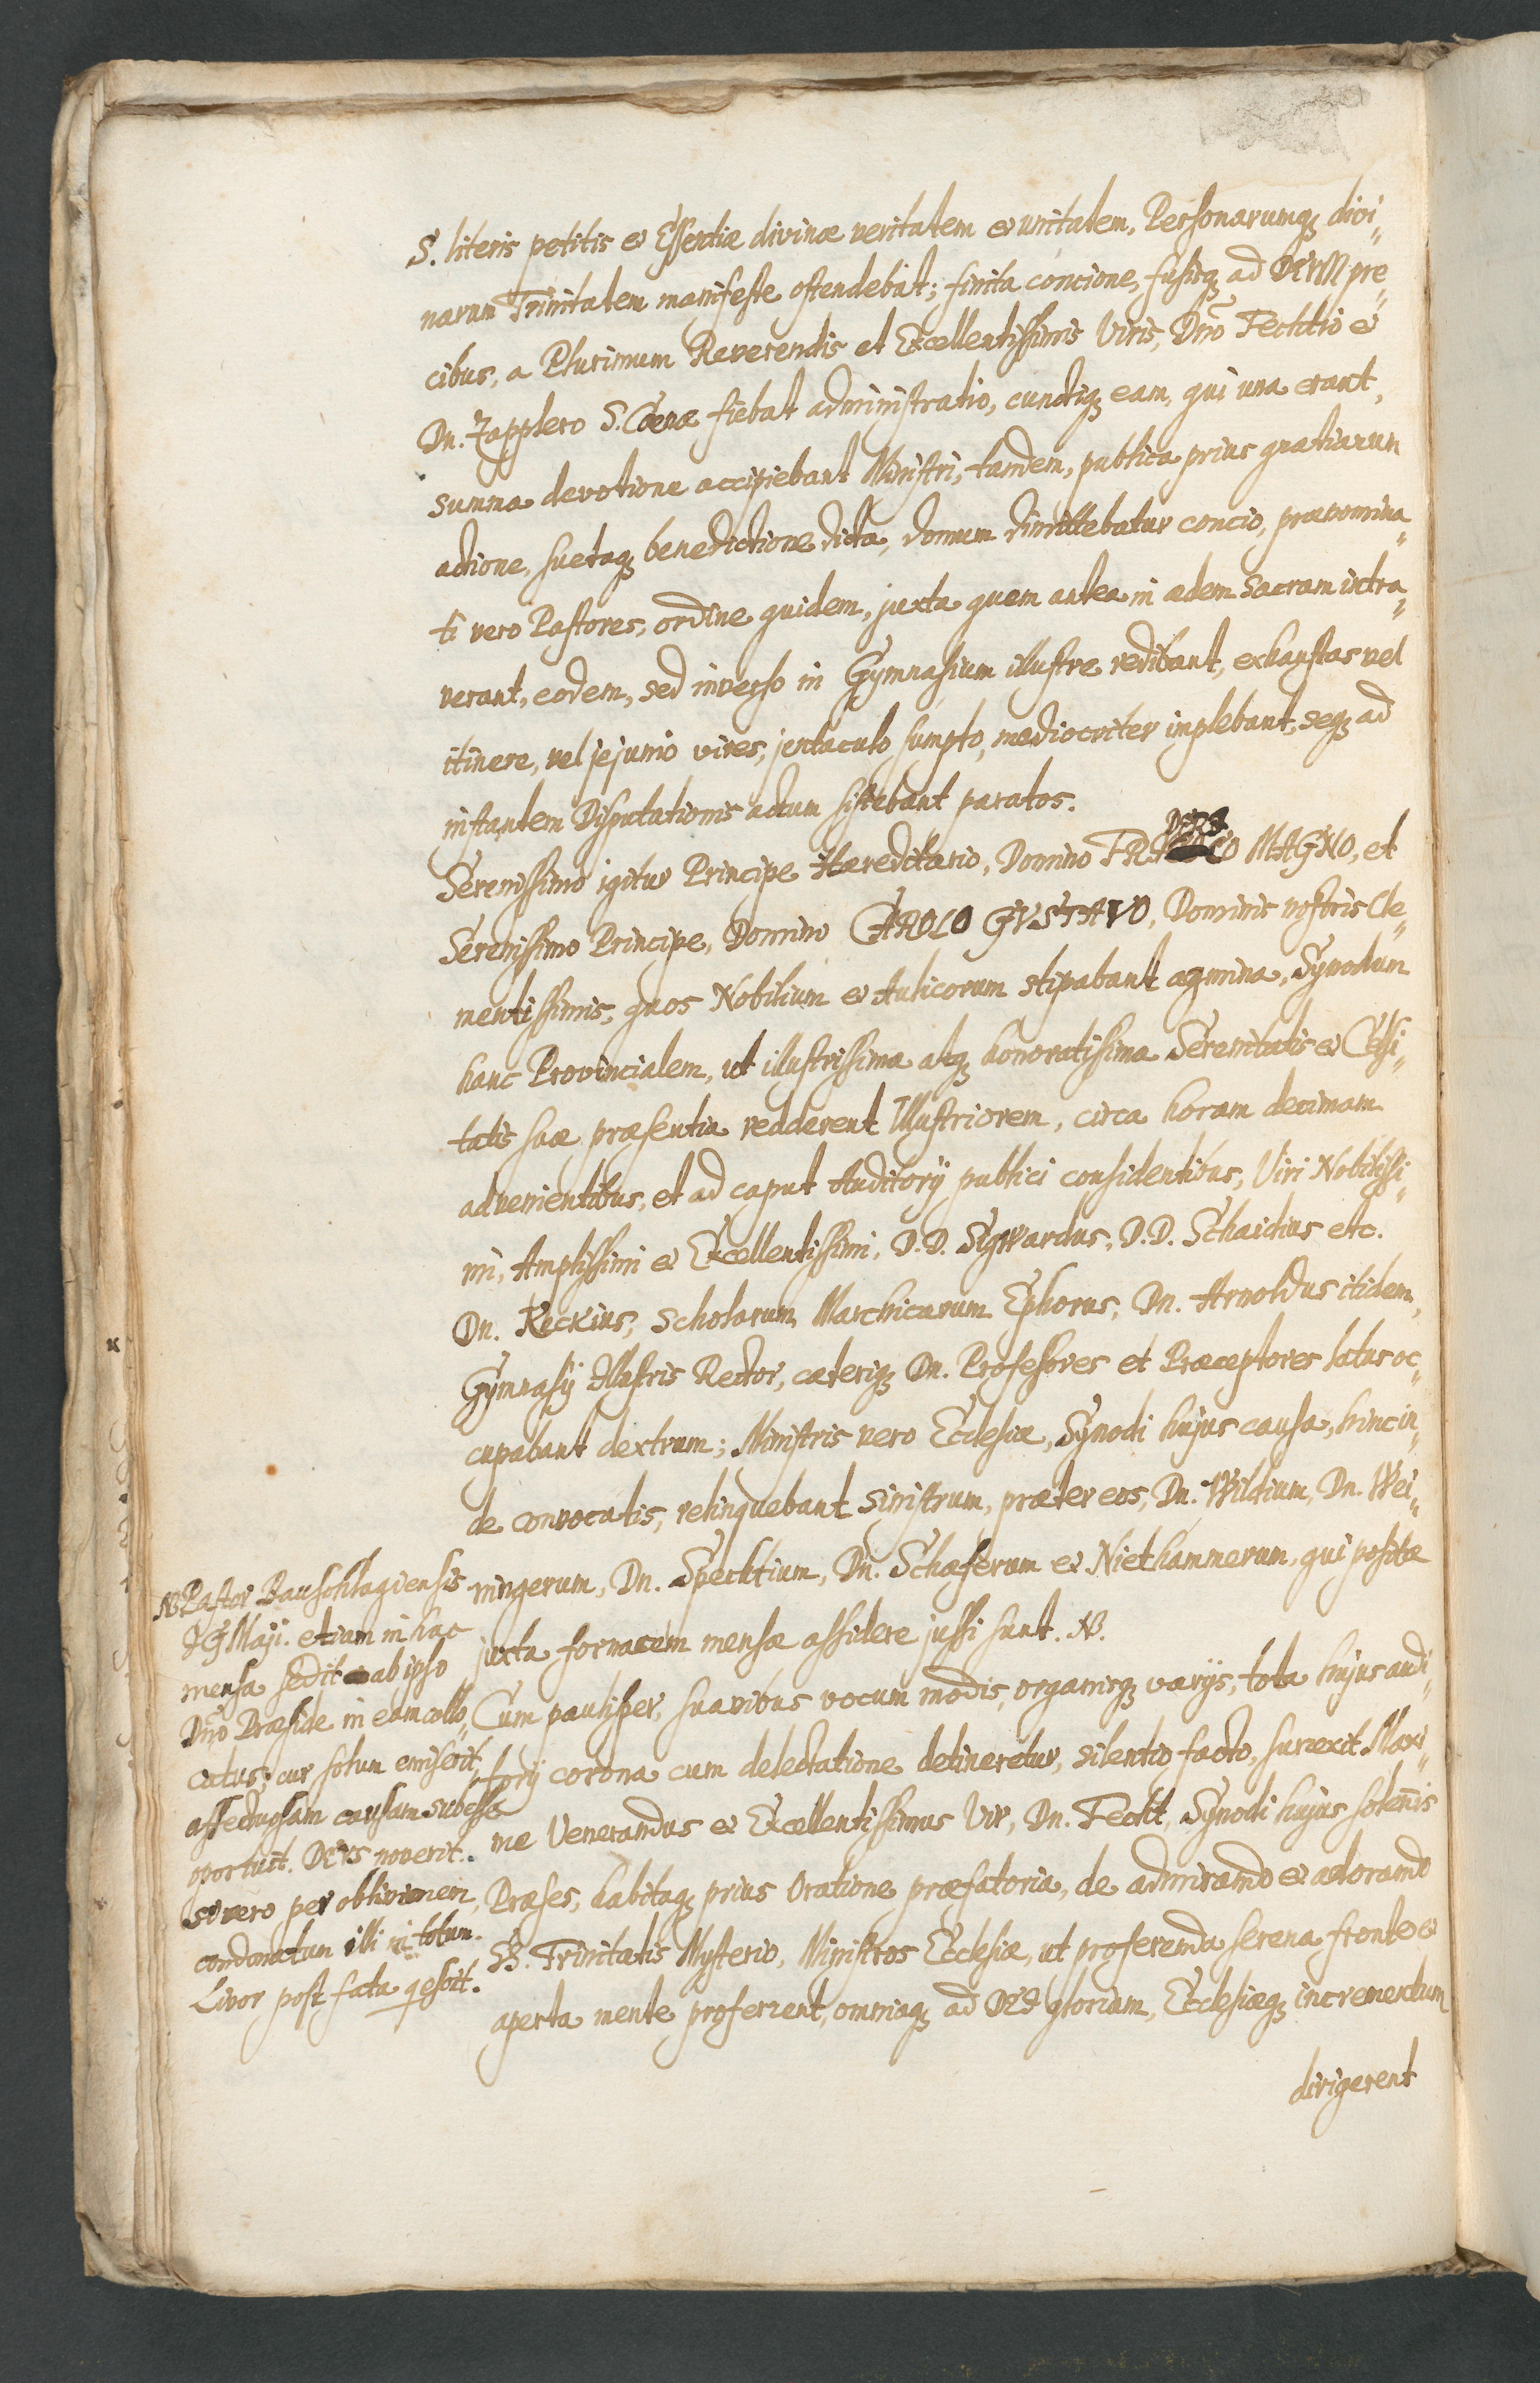 S. literis petitis et Essentiæ divinæ veritatem et unitatem, Personarumq; divi„
narum Trinitatem manifeste ostendebat; finita concione, fusisq; ad DEUM pre„
cibus, a Plurimum Reverendis et Excellentissimis Viris, Dno Fechtio et
Dn. Zapplero S. Cœnæ fiebat administratio, cunctiq; eam, qui una erant,
summa devotione accipiebant Ministri, tandem, publica prius gratiarum
actione, suetaq; benedictione dicta, domum dimittebatur concio, prænomina„
ti vero Pastores, ordine quidem, juxta quem antea in ædem sacram intra„
verant, eodem, sed inverso in Gymnasium illustre redibant, exhaustas vel
itinere, vel jejunio vires, jentaculo sumpto, mediocriter inplebant, seq; ad
instantem Disputationis actum sistebant paratos.
Serenissimo igitur Principe Hæreditario, Domino FRIDERICO MAGNO, et
Serenissimo Principe, Domino CAROLO GVSTAVO, Dominis nostris Cle„
mentissimis, quos Nobilium et Aulicorum stipabant agmina, Synodum
hanc Provincialem, ut illustrissima atq; honoratissima Serenitatis et Celsi„
tatis suæ præsentia redderent Illustriorem, circa horam decimam
advenientibus, et ad caput Auditorij publici considentibus, Viri Nobilissi„
mi, Amplissimi et Excellentissimi, D. D. Sigwardus, D. D. Schaidius etc.
Dn. Keckius, Scholarum Marchicarum Ephorus, Dn. Arnoldus itidem,
Gymnasij Illustris Rector, cæteriq; Dn. Professores et Præceptores latus oc„
cupabant dextrum; Ministris vero Ecclesiæ, Synodi hujus causa, hinc in„
de convocatis, relinquebant sinistrum, præter eos, Dn. Wildium, Dn. Wei„
ningerum, Dn. Spechtium, Dn. Schæferum et Niethammerum, qui positæ
juxta fornacem mensæ assidere jussi sunt. NB.
Cum paulisper, suavibus vocum modis, organisq; varijs, tota hujus audi„
torij corona cum delectatione detineretur, silentio facto, surrexit Maxi„
me Venerandus et Excellentissimus Vir, Dn. Fecht, Synodi hujus solennis
Præses, habitaq; prius Oratione præfatoria, de admirando et adorando
SS. Trinitatis Mysterio, Ministros Ecclesiæ, ut proferenda serena fronte et
aperta mente proferrent, omniaq; ad DEI gloriam, Ecclesiæq; incrementum
dirigerent
NB Pastor Bauschlagiensis
J G Maji. etiam in hac
mensa sedit ab ipso
Dno Præside in eam collo„
catus; cur solum omiserit,
affectuosam causam subesse
oportuit. DEVS noverit.
si vero per oblivionem,
condonatum illi in totum.
Livor post fata qescit.